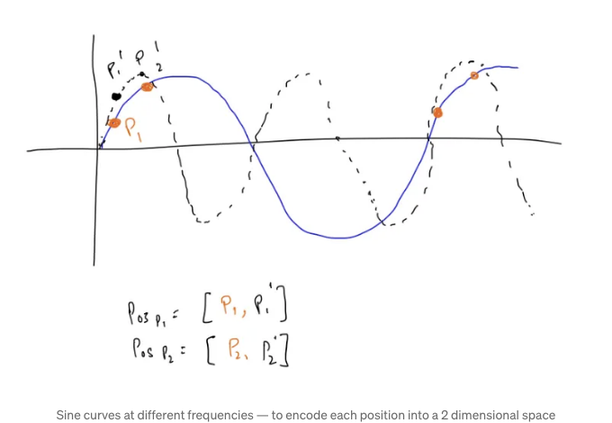 P₁' P₂'
P₁
Pos P₁ = [ P₁, P₁' ]
Pos P₂ = [ P₂, P₂' ]
Sine curves at different frequencies — to encode each position into a 2 dimensional space